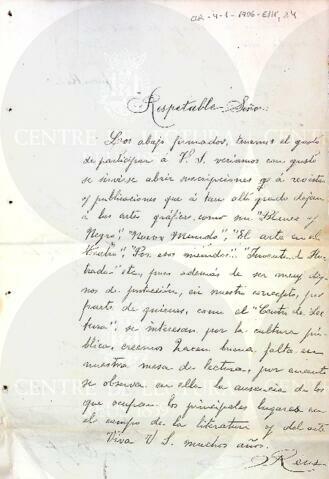 Respetable Señor:
Los abajo firmados, tenemos el gusto
de participar á V. S. veriamos con gusto
se sirviese abrir suscripciones á revistas
y publicaciones que á tan alto grado dejan
á las artes gráficas, como son "Blanco y
Negro", "Nuevo Mundo", "El arte en el
"Por esos mundos"
etc, pues además de ser muy dig
nos de protección, en nuestro concepto, por
parte de quienes, como el "Centro de Lec
tura", se interesan por la cultura pú
blica, creemos hacen buena falta en
nuestra mesa de lectura, por cuanto
se observa en ella la ausencia de los
que ocupan los principales lugares en
el campo de la literatura y del arte
Viva V. S. muchos años.
Reus
CENTRE DE LECTURA